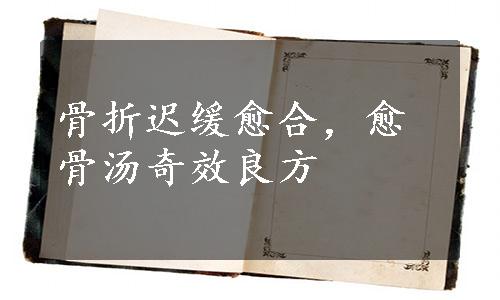 骨折迟缓愈合，愈
骨汤奇效良方